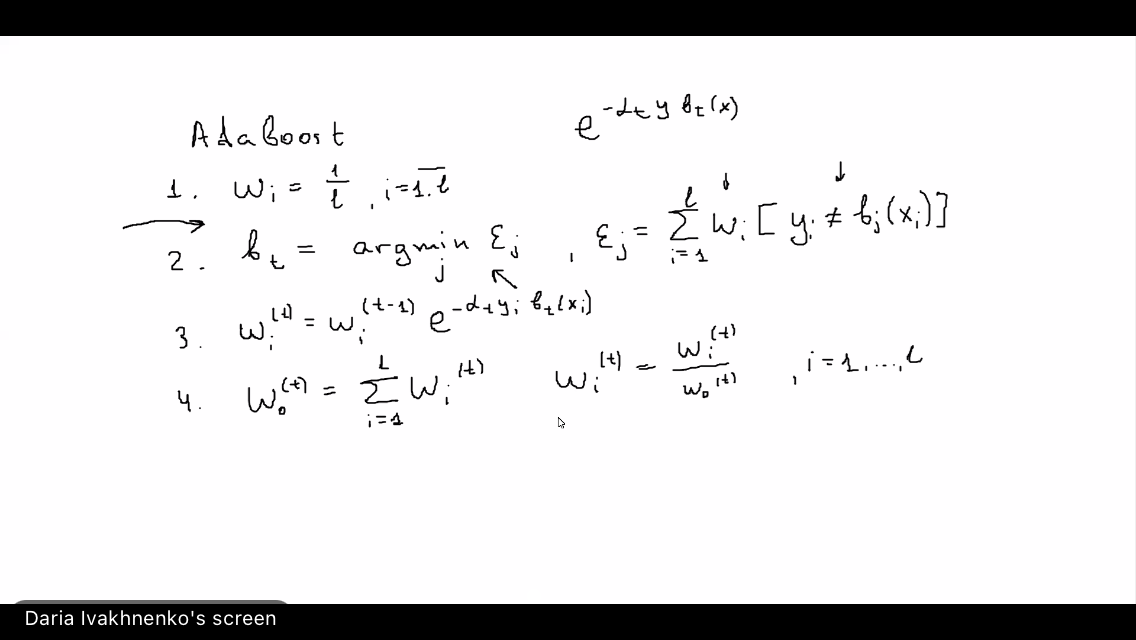 AdaBoost
e^{-α_t y b_t(x)}
1. w_i = 1/l , i=1.l
2. b_t = argmin_j ε_j , ε_j = Σ_{i=1}^{l} w_i [ y_i ≠ b_j(x_i) ]
3. w_i^{(t)} = w_i^{(t-1)} e^{-α_t y_i b_t(x_i)}
4. w_0^{(t)} = Σ_{i=1}^{l} w_i^{(t)} w_i^{(t)} = w_i^{(t)} / w_0^{(t)} , i=1,...,l
Daria Ivakhnenko's screen